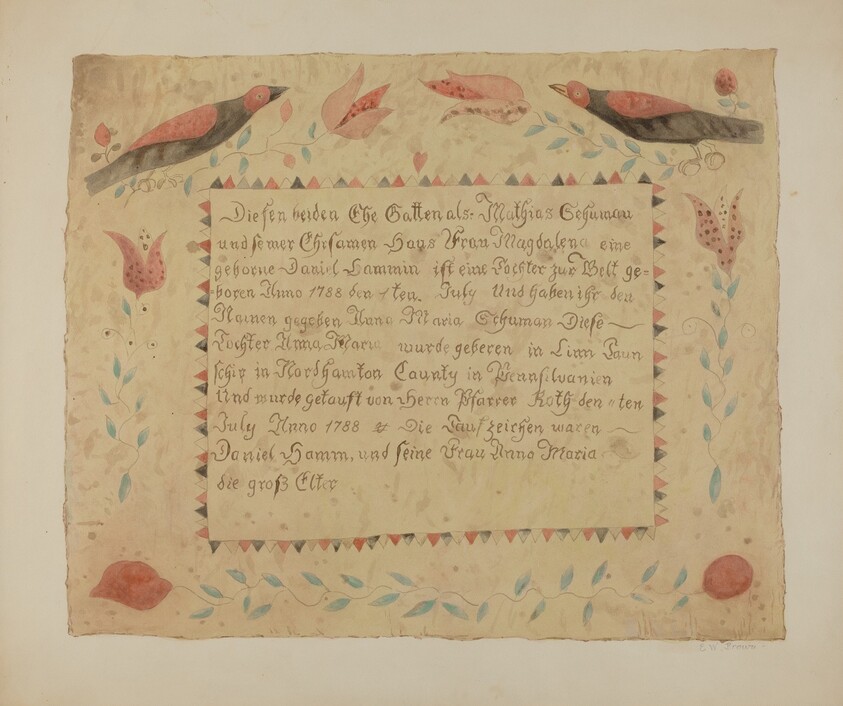 Diesen beiden Ehe Gatten als: Mathias Schuman
und seiner Ehrsamen Haas Frau Magdalena eine
geborne Daniel Hammin ist eine Tochter zur Welt ge=
boren Anno 1788 den 1ten. July Und haben ihr den
Namen gegeben Anna Maria Schuman Diese
Tochter Anna Maria wurde geberen in Linn Taun
schip in Nordhamton County in Pennsilvanien
Und wurde getauft von Herrn Pfarrer Roth den ten
July Anno 1788 Die Taufzeichen waren
Daniel Hamm, und seine Frau Anna Maria
die groß Elter
E W Brown